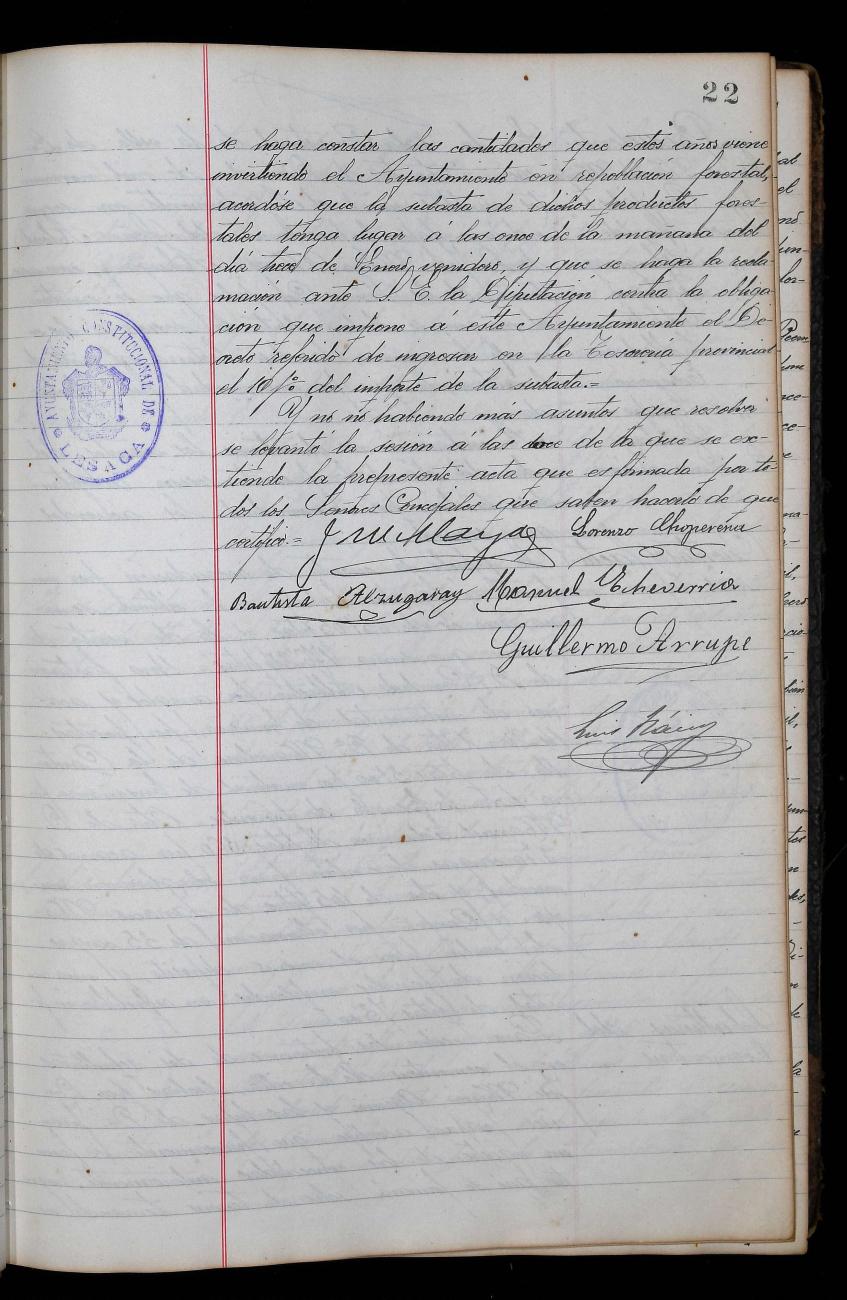 22
se haga constar las cantidades que estos años viene
invirtiendo el Ayuntamiento en repoblación forestal,
acordóse que la subasta de dichos productos fores-
tales tenga lugar á las once de la mañana del
día trece de Enero venidero, y que se haga la recla
mación ante S. E. la Diputación contra la obliga
ción que impone á este Ayuntamiento el De-
creto referido de ingresar en la Tesorería provincial
el 10 p% del importe de la subasta.=
Y no no habiendo más asuntos que resolver
se levantó la sesión a las doce de la que se ex-
tiende la prepresente acta que es firmada por to-
dos los Señores Concejales que saben hacerlo de que
certifico.=
J M Maya Lorenzo Choperena
Bautista Alzugaray Manuel Echeverria
Guillermo Arrupe
Luis
AYUNTAMIENTO CONSTITUCIONAL DE
LESACA